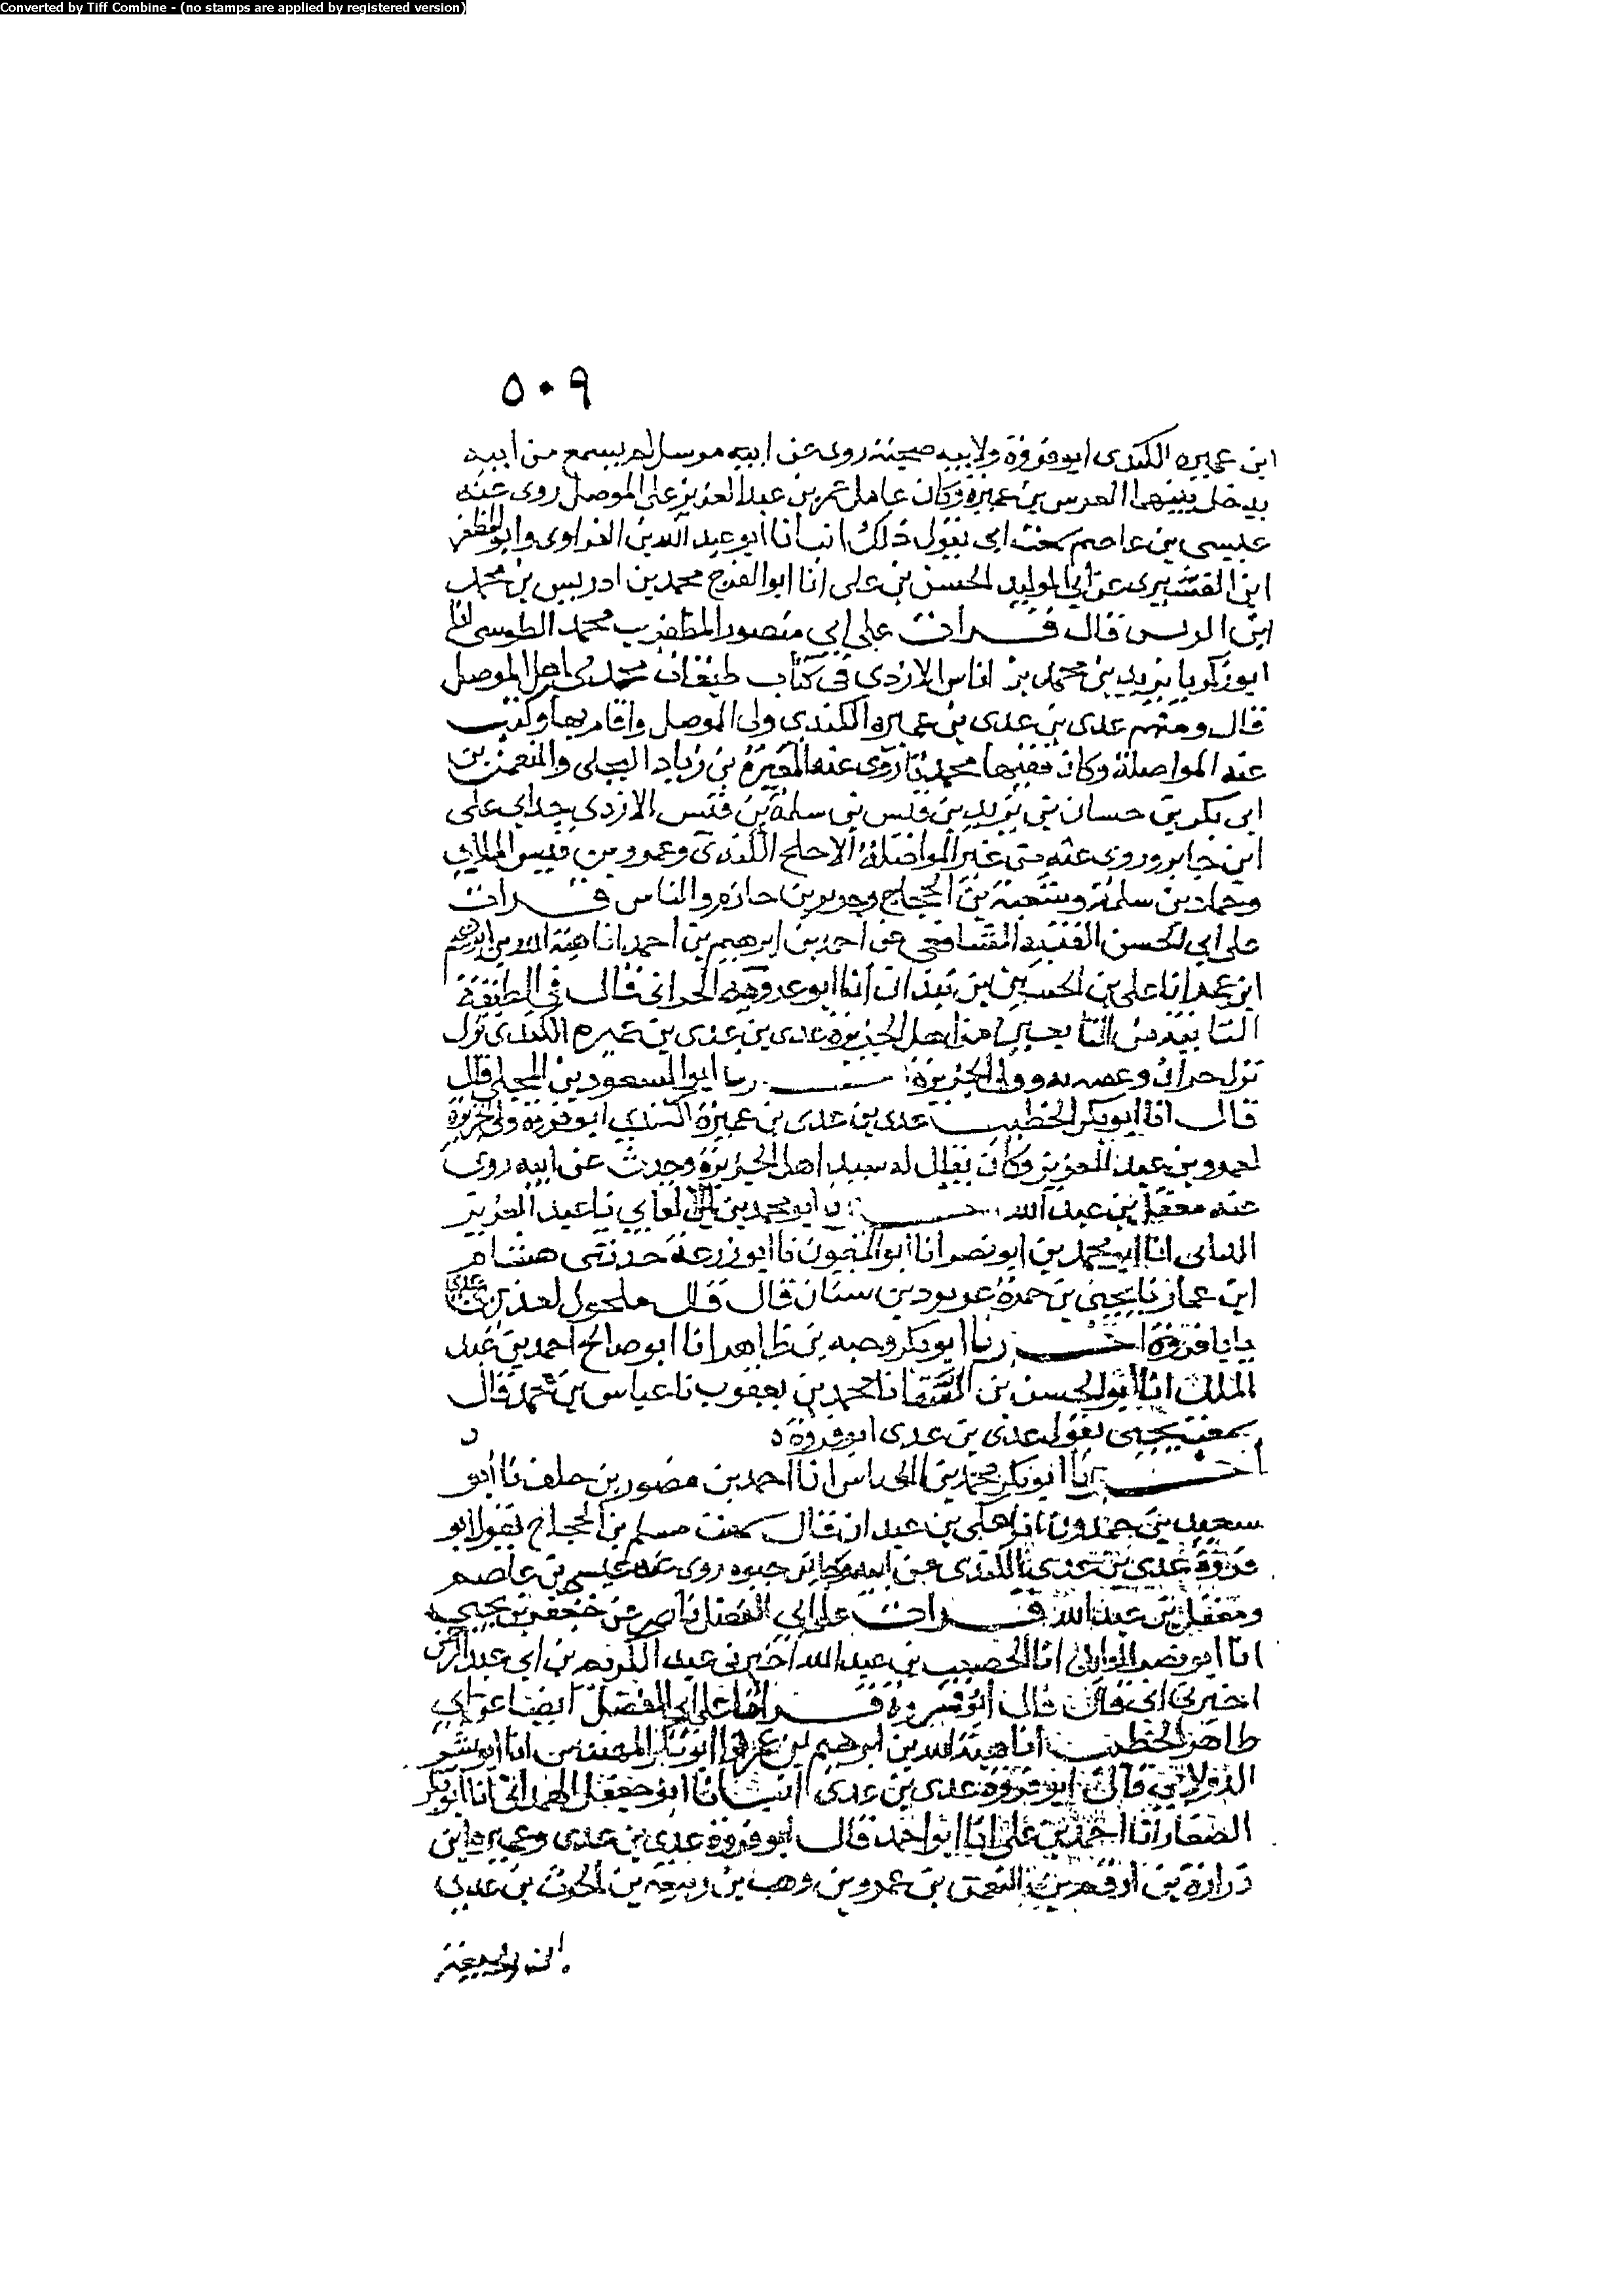 Converted by Tiff Combine - (no stamps are applied by registered version)
٥٠٩
ابن عميره الكندى ابو فروة ولابيه صحبة روى عن ابيه مرسل لم يسمع من ابيه
يدخل بينهما العرس بن عميرة وكان عامل عمر بن عبد العزيز على الموصل روى عنه
عيسى بن عاصم سمعت ابى يقول ذلك انبانا ابو عبد الله بن الفراوى وابو المظفر
ابن القشيرى عن ابى الوليد الحسن بن على انا ابو الفرج محمد بن ادريس بن محمد
ابن ادريس قال قرات على ابى منصور المظفر بن محمد الطوسى انا
ابو زكريا يزيد بن محمد بن اياس الازدى فى كتاب طبقات محدثى اهل الموصل
قال ومنهم عدى بن عدى بن عميره الكندى ولى الموصل واقام بها وكتب
عنه المواصلة وكان فقيها محدثا روى عنه المغيرة بن زياد البجلى والنعمن بن
ابى بكر بن حسان بن يزيد بن قيس بن سلمة بن قيس الازدى جد ابى على
ابن جابر وروى عنه من غير المواصلة الاجلح الكندى وعمرو بن قيس الملائى
وحماد بن سلمة وشعبة بن الحجاج وجرير بن حازم والناس قرات
على ابى الحسن الفقيه الشافعى عن احمد بن ابرهيم بن احمد انا هبة الله بن ابرهيم
ابن عمر انا على بن الحسين بن بندار انا ابو عروبة الحرانى قال فى الطبقة
الثانية من التابعين من اهل الجزيرة عدى بن عدى بن عميره الكندى نزل
نزل حران وعقبه بها وولى الجزيرة اخبرنا ابو السعود بن المجلى قال
قال انا ابو بكر الخطيب عدى بن عدى بن عميرة الكندى ابو فروة ولى الجزيرة
لعمر بن عبد العزيز وكان يقال له سيد اهل الجزيرة وحدث عن ابيه روى
عنه معقل بن عبد الله اخبرنا ابو محمد بن الاكفانى نا عبد العزيز
الكتانى انا ابو محمد بن ابو نصر انا ابو الميمون نا ابو زرعة حدثنى هشام
ابن عمار نا يحيى بن حمزة عن برد بن سنان قال قال مكحول لعدى بن عدى
يا ابا فروة اخبرنا ابو بكر وجيه بن طاهر انا ابو صالح احمد بن عبد
الملك انا ابو الحسن بن السقا نا محمد بن يعقوب نا عباس بن محمد قال
سمعت يحيى يقول عدى بن عدى ابو فروة
اخبرنا ابو بكر محمد بن العباس انا احمد بن منصور بن خلف نا ابو
سعيد بن حمدون انا مكى بن عبدان قال سمعت مسلم بن الحجاج يقول ابو
فروة عدى بن عدى الكندى عن ابيه ورجاء بن حيوه روى عنه عيسى بن عاصم
ومعقل بن عبد الله قرات على ابى الفضل ناصر عن جعفر بن يحيى
انا ابو نصر الوائلى انا الخصيب بن عبد الله اخبرنى عبد الكريم بن ابى عبد الرحمن
اخبرنى ابى قال قال ابو فروة قرانا على ابى الفضل ايضا عن ابى
طاهر الخطيب انا هبة الله بن ابرهيم بن عمر انا ابو بكر المهندس انا ابو بشر
الدولابى قال ابو فروة عدى بن عدى انبانا ابو جعفر الهمدانى انا ابو بكر
الصفار انا احمد بن على انا ابو احمد قال ابو فروة عدى بن عدى وعميره ابن
زرارة بن ارقم بن النعمن بن عمرو بن وهب بن ربيعة بن الحرث بن عدى
ابن ربيعة